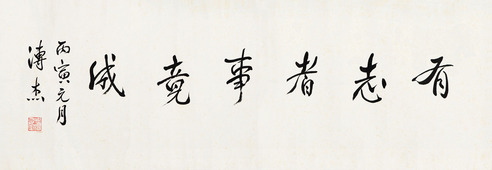 有志者事竟成
丙寅元月
溥杰